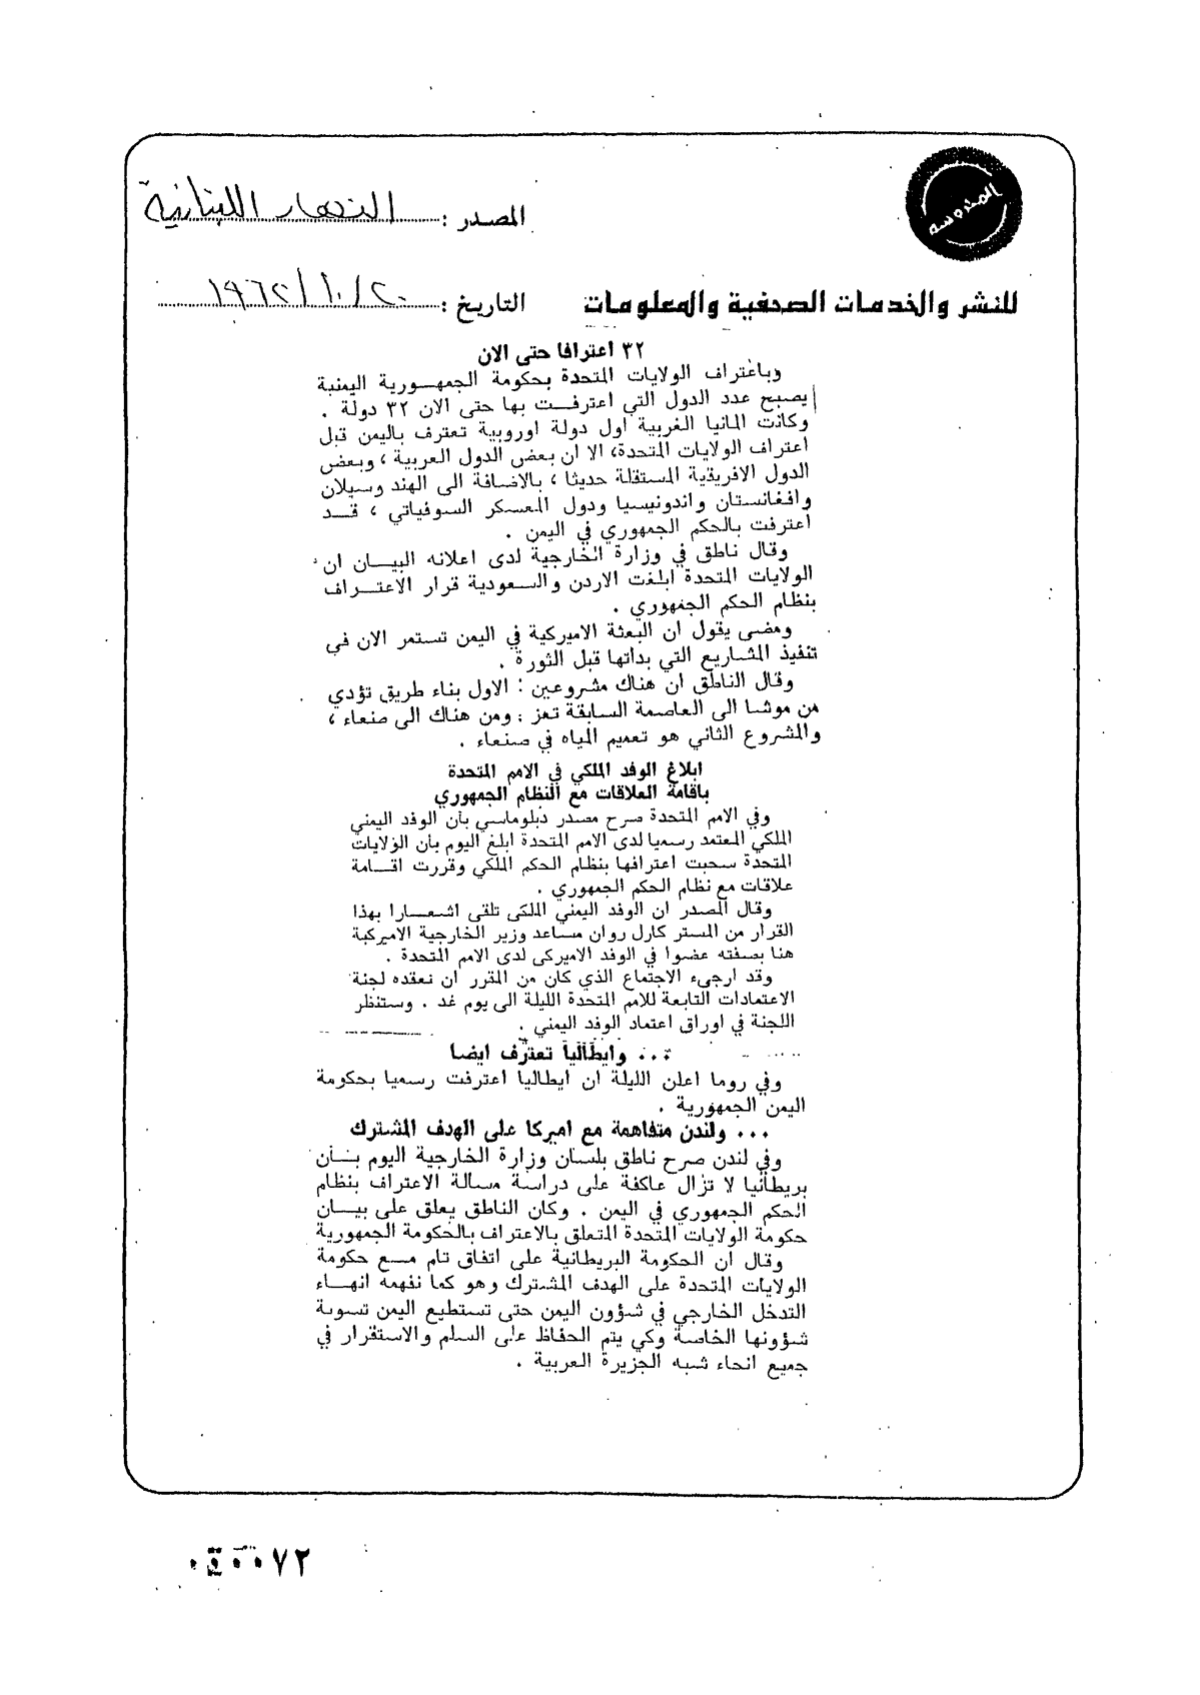 المحروسة
المصدر : النهار اللبنانية
للنشر والخدمات الصحفية والمعلومات
التاريخ : ٢٠/١٠/١٩٦٢
٣٢ اعترافا حتى الان
وباعتراف الولايات المتحدة بحكومة الجمهورية اليمنية
يصبح عدد الدول التي اعترفت بها حتى الان ٣٢ دولة .
وكانت المانيا الغربية اول دولة اوروبية تعترف باليمن قبل
اعتراف الولايات المتحدة، الا ان بعض الدول العربية ، وبعض
الدول الافريقية المستقلة حديثا ، بالاضافة الى الهند وسيلان
وافغانستان واندونيسيا ودول المعسكر السوفياتي ، قد
اعترفت بالحكم الجمهوري في اليمن .
وقال ناطق في وزارة الخارجية لدى اعلانه البيان ان
الولايات المتحدة ابلغت الاردن والسعودية قرار الاعتراف
بنظام الحكم الجمهوري .
ومضى يقول ان البعثة الاميركية في اليمن تستمر الان في
تنفيذ المشاريع التي بداتها قبل الثورة .
وقال الناطق ان هناك مشروعين : الاول بناء طريق تؤدي
من موشا الى العاصمة السابقة تعز ; ومن هناك الى صنعاء ،
والمشروع الثاني هو تعميم المياه في صنعاء .
ابلاغ الوفد الملكي في الامم المتحدة
باقامة العلاقات مع النظام الجمهوري
وفي الامم المتحدة صرح مصدر دبلوماسي بأن الوفد اليمني
الملكي المعتمد رسميا لدى الامم المتحدة ابلغ اليوم بأن الولايات
المتحدة سحبت اعترافها بنظام الحكم الملكي وقررت اقامة
علاقات مع نظام الحكم الجمهوري .
وقال المصدر ان الوفد اليمني الملكي تلقى اشعارا بهذا
القرار من المستر كارل روان مساعد وزير الخارجية الاميركية
هنا بصفته عضوا في الوفد الاميركي لدى الامم المتحدة .
وقد ارجىء الاجتماع الذي كان من المقرر ان تعقده لجنة
الاعتمادات التابعة للامم المتحدة الليلة الى يوم غد . وستنظر
اللجنة في اوراق اعتماد الوفد اليمني .
... وايطاليا تعترف ايضا
وفي روما اعلن الليلة ان ايطاليا اعترفت رسميا بحكومة
اليمن الجمهورية .
... ولندن متفاهمة مع اميركا على الهدف المشترك
وفي لندن صرح ناطق بلسان وزارة الخارجية اليوم بأن
بريطانيا لا تزال عاكفة على دراسة مسالة الاعتراف بنظام
الحكم الجمهوري في اليمن . وكان الناطق يعلق على بيان
حكومة الولايات المتحدة المتعلق بالاعتراف بالحكومة الجمهورية
وقال ان الحكومة البريطانية على اتفاق تام مع حكومة
الولايات المتحدة على الهدف المشترك وهو كما نفهمه انهاء
التدخل الخارجي في شؤون اليمن حتى تستطيع اليمن تسوية
شؤونها الخاصة وكي يتم الحفاظ على السلم والاستقرار في
جميع انحاء شبه الجزيرة العربية .